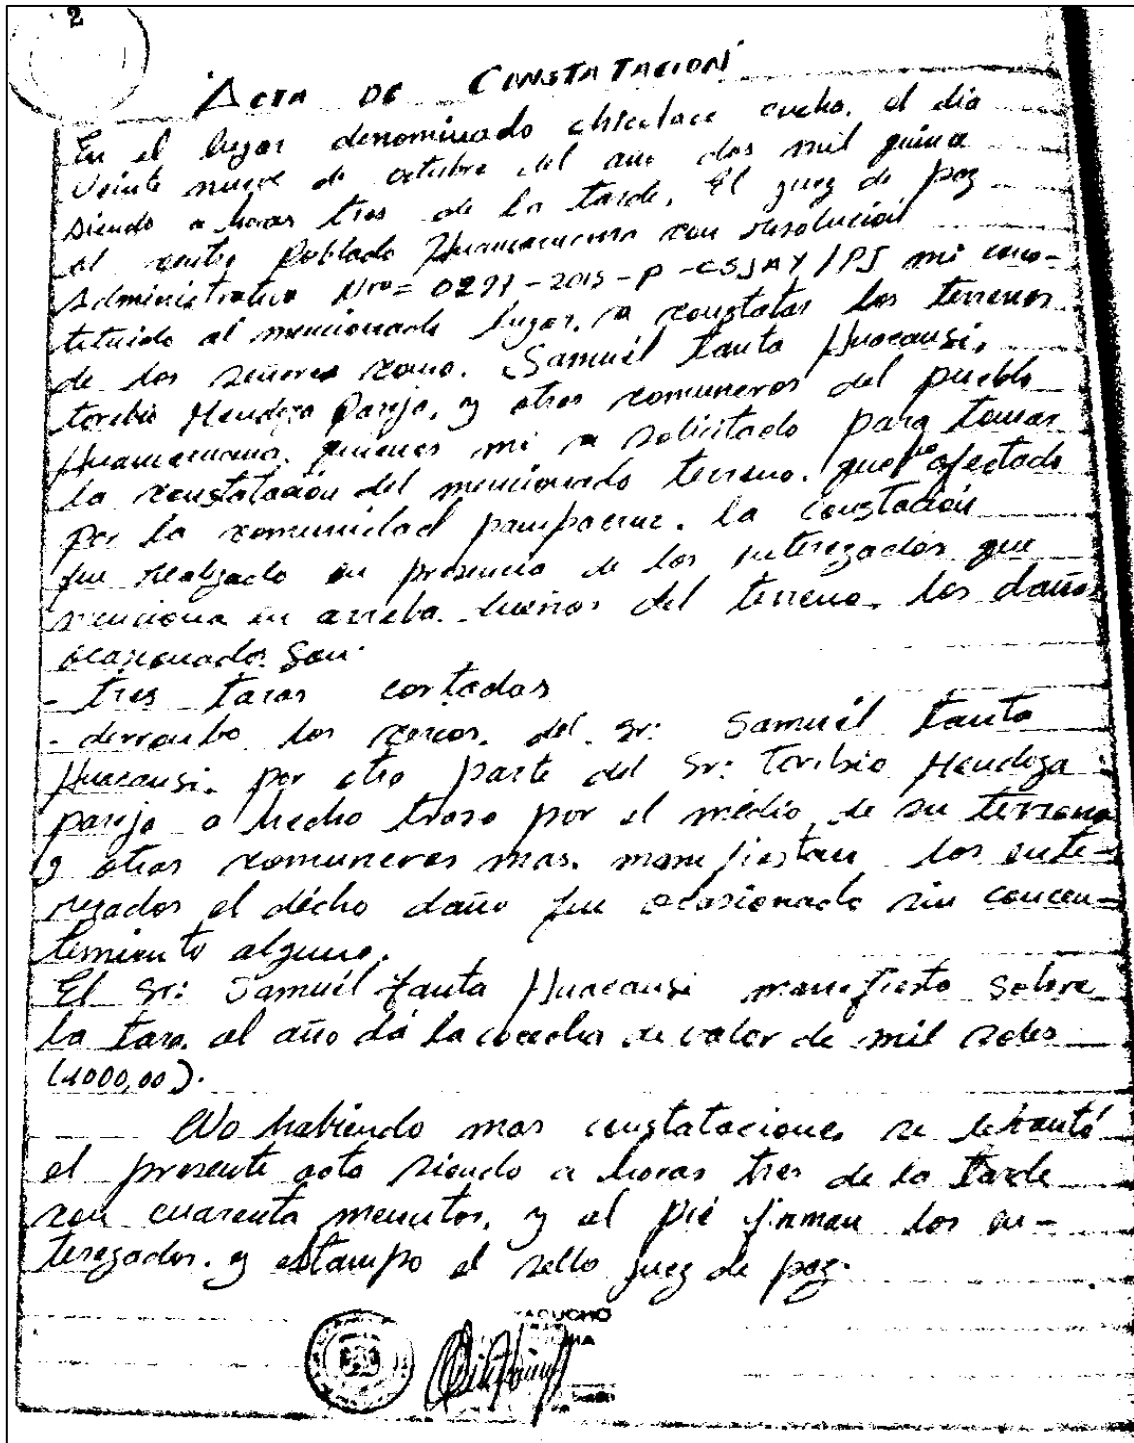 2
ACTA DE CONSTATACION
En el lugar denominado cucho, el dia
Veinte nueve de octubre del año dos mil quince
siendo a horas tres de la tarde, El juez de paz
del centro Poblado Huamancuma con resolución
Administrativa Nro= 0297-2015-P-CSJAY/PJ mi cons-
tetuido al mencionado lugar, a constatar los terrenos
de los señores como. Samuél Tauta Huacausi,
toribio Mendoza Pareja, y otros comuneros del pueblo
quienes mi a solicitado para tomar
la constatación del mencionado terreno, que afectado
por la comunidad pampacruz. la constación
fue realizado en presencia de los enterezados que
menciona en arreba. dueños del terreno. los daños
ocasionados son.
- tres taras cortadas
- derrumbo los cercos. del Sr: Samuél Tauta
Huacausi. por otro parte del Sr: Toribio Mendoza
pareja a hecho trozo por el médio de su terreno
y otros comuneros mas. manifiestan los ente-
rezados el décho daño fue ocasionado sin concen-
temiento alguno.
El Sr: Samuél Tauta Huacausi manifiesto sobre
la tara. al año dá la cocecha de valor de mil soles
(1000,00).
No habiendo mas constataciones se lebantó
el presente acto siendo a horas tres de la tarde
con cuarenta menutos, y al pié firman los en-
terezados. y estampo el sello juez de paz.